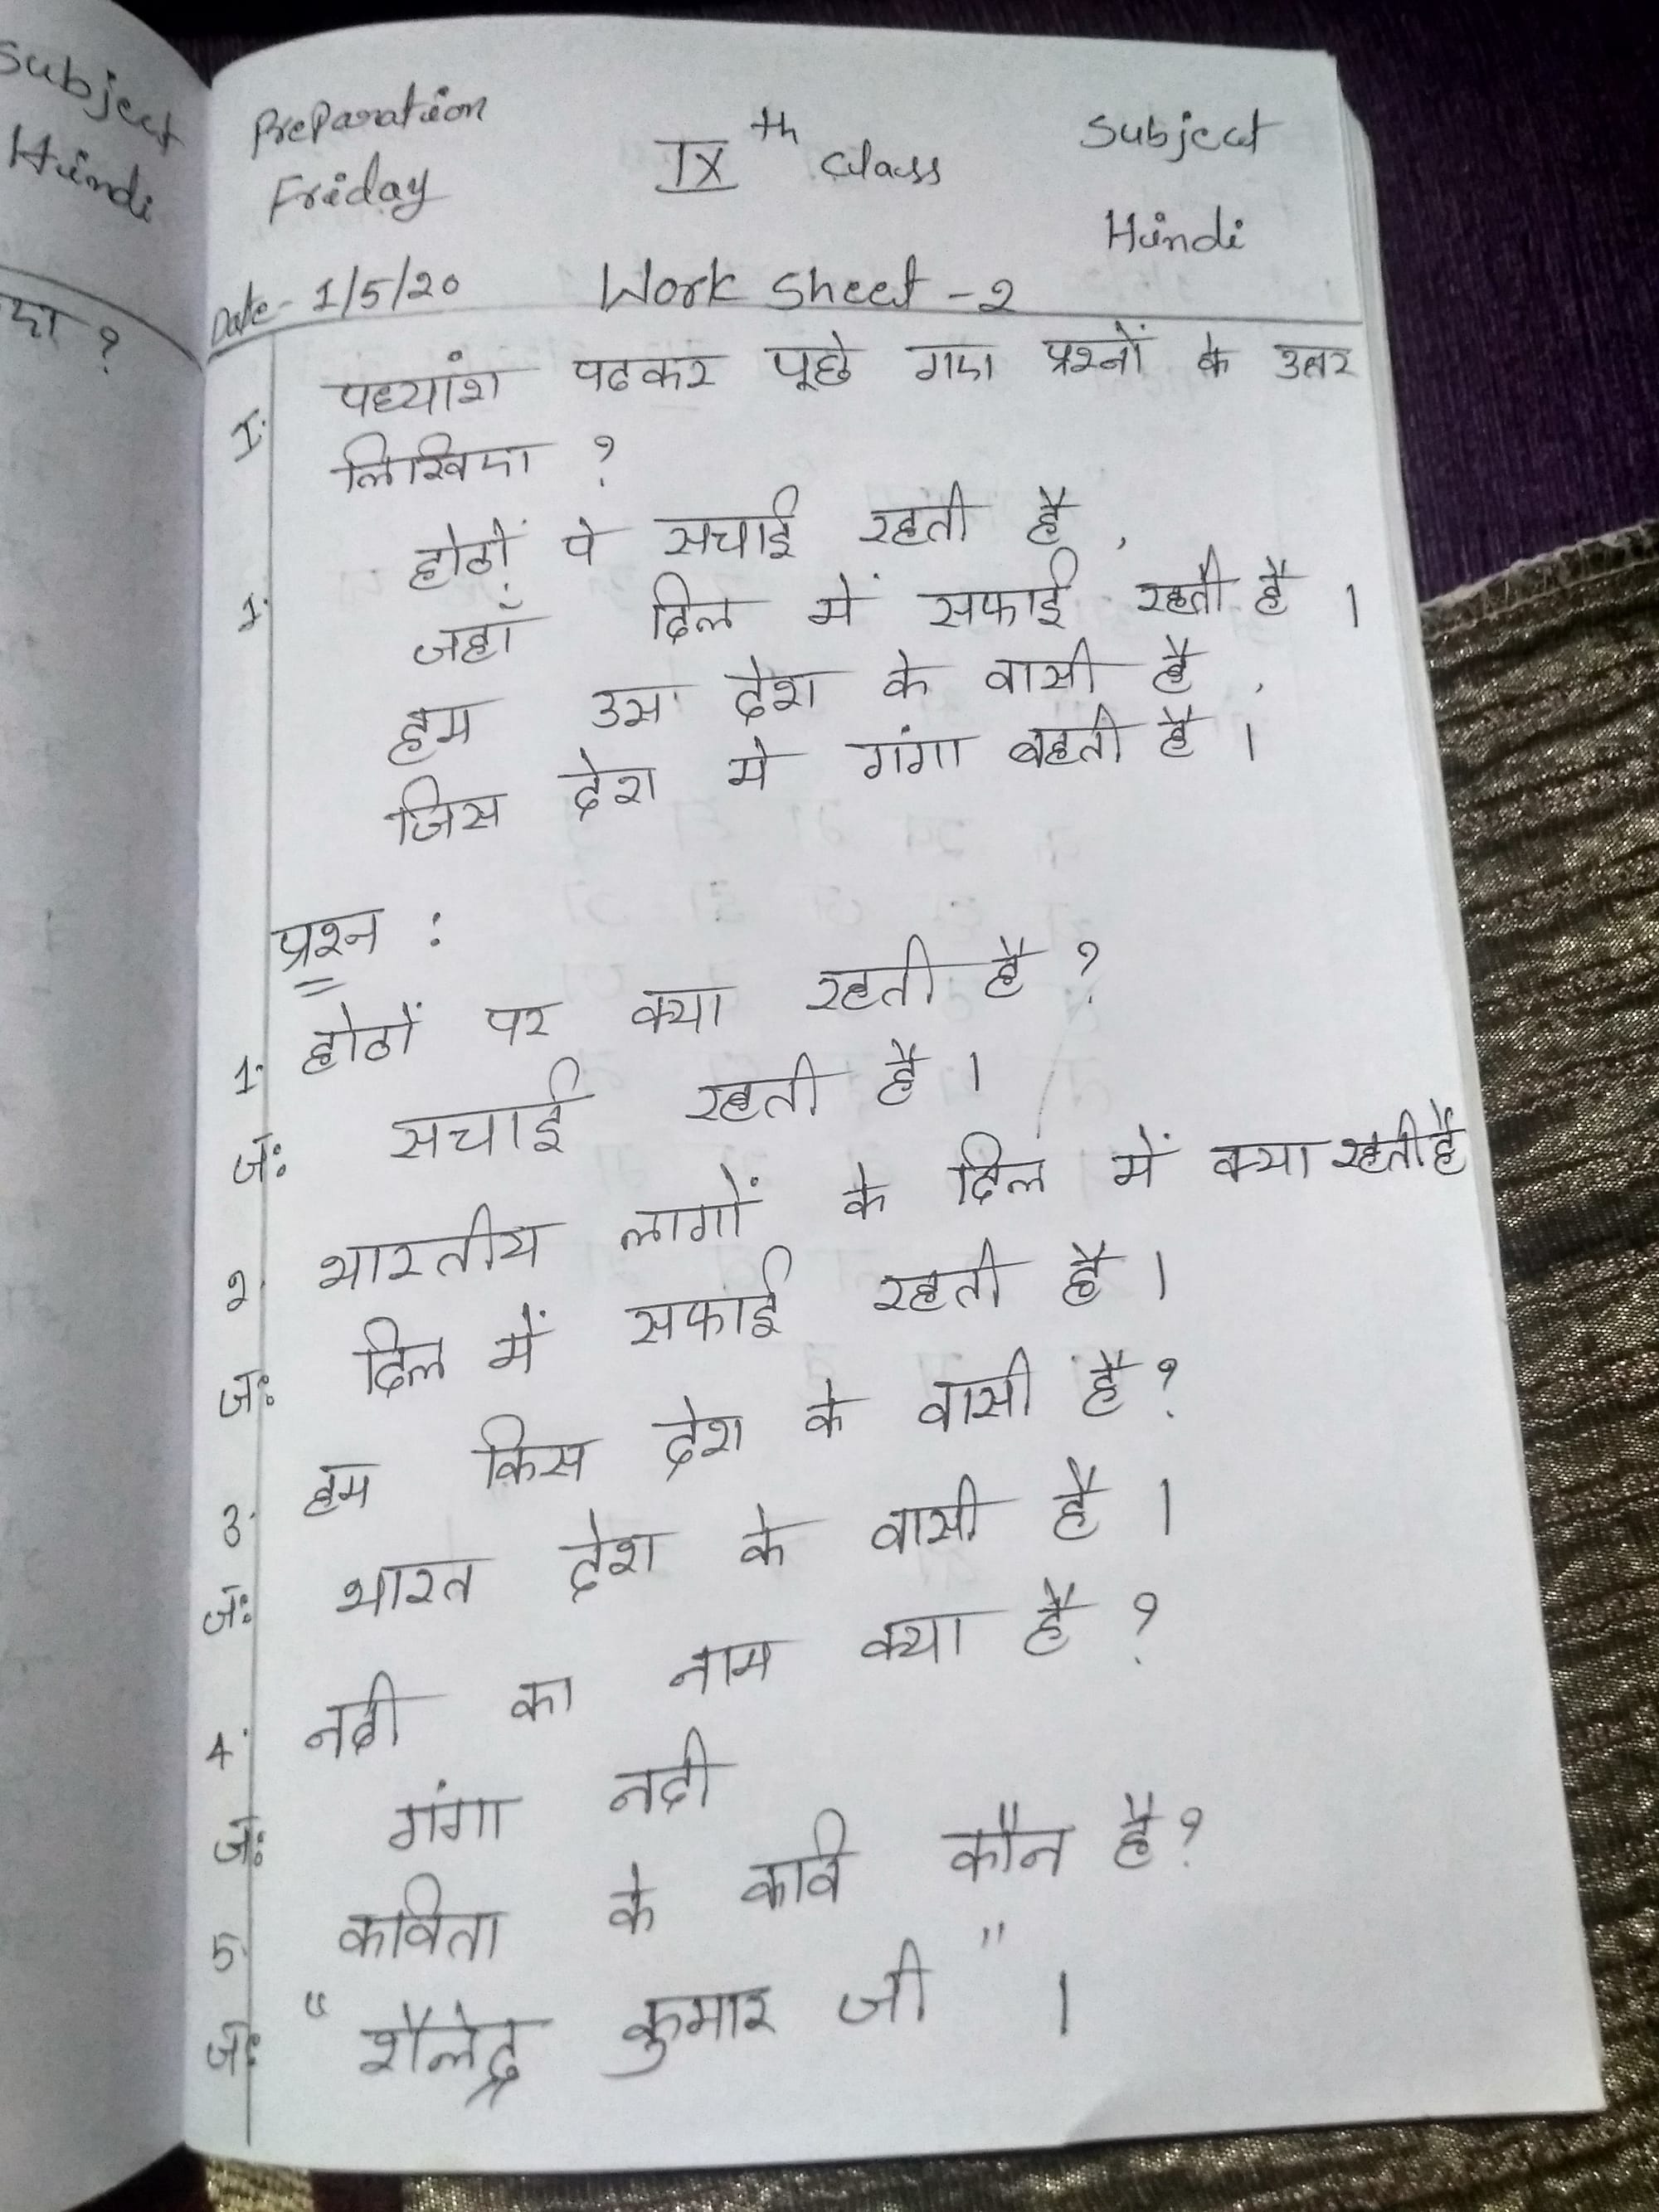 Subject
Hindi
एा ?
Preparation
Friday
IX th class
Subject
Hindi
Date - 1/5/20 Work Sheet - 2
I. पध्यांश पढकर पूछे गए प्रश्नों के उतर
लिखिए ?
1. होठों पे सचाई रहती है ,
जहाँ दिल में सफाई रहती है ।
हम उस देश के वासी है ,
जिस देश मे गंगा बहती है ।
प्रश्न :
1. होठों पर क्या रहती है ?
जः सचाई रहती है ।
2. भारतीय लागों के दिल में क्या रहती है
जः दिल में सफाई रहती है ।
3. हम किस देश के वासी है ?
जः भारत देश के वासी है ।
4. नदी का नाम क्या है ?
जः गंगा नदी
5. कविता के कवि कौन है ?
जः " शैलेंद्र कुमार जी " ।